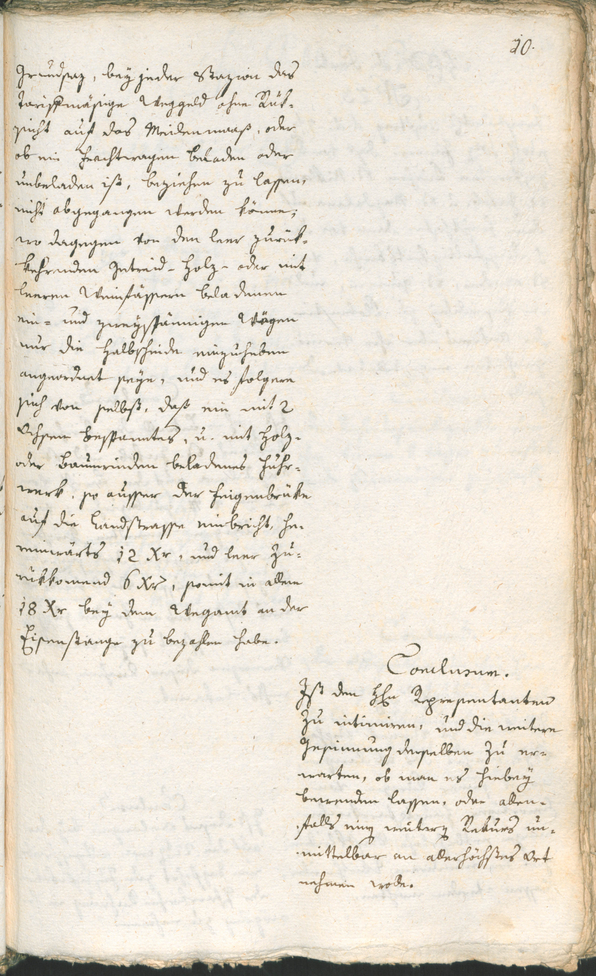 20.
Grundsaz, bey jeder Stazion das
tariffmäsige Weggeld ohne Rük-
sicht auf das Meilenmaaß, oder
ob ein Frachtwagen beladen oder
unbeladen ist, beziehen zu lassen,
nicht abgegangen werden könne;
wo dagegen von den leer zurük-
kehrenden Getreid- Holz- oder mit
leeren Weinfässern beladenen
ein- und zweyspännigen Wägen
nur die Halbscheide einzuheben
angeordnet seye, und es folgere
sich von selbst, daß ein mit 2
Ochsen bespanntes, u. mit Holz-
oder Baumrinden beladenes Fuhr-
werk, so ausser der Feigenbrüke
auf die Landstrasse einbricht, he-
reinwärts 12 Xr, und leer zu-
rükkomend 6 Xr, somit in allem
18 Xr bey dem Wegamt an der
Eisenstange zu bezahlen habe.
Conclusum.
Ist den HHn Representanten
zu intimiren, und die weitere
Gesinnung derselben zu er-
warten, ob man es hiebey
bewenden lassen, oder allen-
falls einen weitern Rekurs un-
mittelbar an allerhöchstes Ort
nehmen wolle.